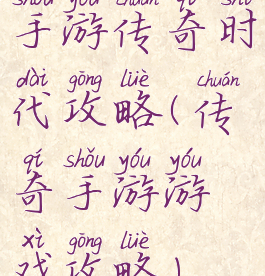 shǒu yóu chuán qí shí
手游传奇时
dài gōng lüè chuán
代攻略(传
qí shǒu yóu yóu
奇手游游
xì gōng lüè
戏攻略)